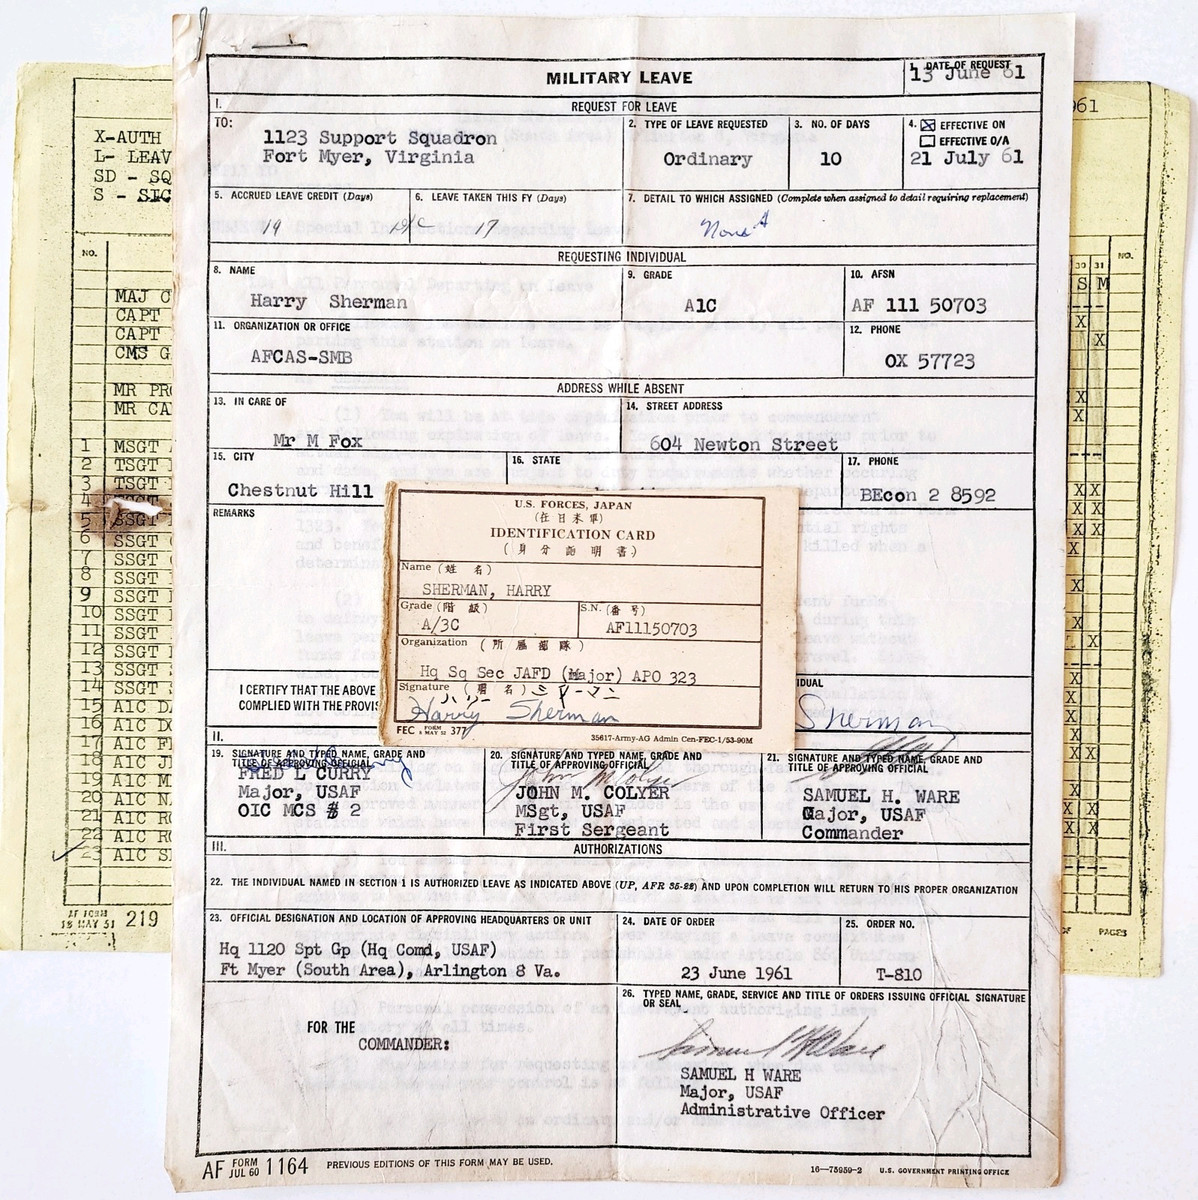 MILITARY LEAVE
1. DATE OF REQUEST
13 June 61
I. REQUEST FOR LEAVE
TO:
1123 Support Squadron
Fort Myer, Virginia
2. TYPE OF LEAVE REQUESTED
Ordinary
3. NO. OF DAYS
10
4. ☒ EFFECTIVE ON
☐ EFFECTIVE O/A
21 July 61
5. ACCRUED LEAVE CREDIT (Days)
19
6. LEAVE TAKEN THIS FY (Days)
17
7. DETAIL TO WHICH ASSIGNED (Complete when assigned to detail requiring replacement)
None
REQUESTING INDIVIDUAL
8. NAME
Harry Sherman
9. GRADE
A1C
10. AFSN
AF 111 50703
11. ORGANIZATION OR OFFICE
AFCAS-SMB
12. PHONE
OX 57723
ADDRESS WHILE ABSENT
13. IN CARE OF
Mr M Fox
14. STREET ADDRESS
604 Newton Street
15. CITY
Chestnut Hill
16. STATE
17. PHONE
BEcon 2 8592
REMARKS
I CERTIFY THAT THE ABOVE
COMPLIED WITH THE PROVIS
Sherman
U.S. FORCES, JAPAN
(在日米軍)
IDENTIFICATION CARD
(身分証明書)
Name (姓名)
SHERMAN, HARRY
Grade (階級)
A/3C
S.N. (番号)
AF11150703
Organization (所属部隊)
Hq Sq Sec JAFD (Major) APO 323
Signature (署名) シャーマン
ハリー
Harry Sherman
FEC FORM 377
35617-Army-AG Admin Cen-FEC-1/53-90M
II.
19. SIGNATURE AND TYPED NAME, GRADE AND
TITLE OF APPROVING OFFICIAL
FRED L CURRY
Major, USAF
OIC MCS # 2
20. SIGNATURE AND TYPED NAME, GRADE AND
TITLE OF APPROVING OFFICIAL
John M Colyer
JOHN M. COLYER
MSgt, USAF
First Sergeant
21. SIGNATURE AND TYPED NAME, GRADE AND
TITLE OF APPROVING OFFICIAL
SAMUEL H. WARE
Major, USAF
Commander
III. AUTHORIZATIONS
22. THE INDIVIDUAL NAMED IN SECTION 1 IS AUTHORIZED LEAVE AS INDICATED ABOVE (UP, AFR 35-22) AND UPON COMPLETION WILL RETURN TO HIS PROPER ORGANIZATION
23. OFFICIAL DESIGNATION AND LOCATION OF APPROVING HEADQUARTERS OR UNIT
Hq 1120 Spt Gp (Hq Comd, USAF)
Ft Myer (South Area), Arlington 8 Va.
24. DATE OF ORDER
23 June 1961
25. ORDER NO.
T-810
26. TYPED NAME, GRADE, SERVICE AND TITLE OF ORDERS ISSUING OFFICIAL SIGNATURE
OR SEAL
FOR THE
COMMANDER:
Samuel H Ware
SAMUEL H WARE
Major, USAF
Administrative Officer
AF FORM JUL 60 1164
PREVIOUS EDITIONS OF THIS FORM MAY BE USED.
16—75959-2 U.S. GOVERNMENT PRINTING OFFICE
X-AUTH
L- LEAV
SD - SQ
S - SIC
NO.
MAJ C
CAPT
CAPT
CMS G
MR PRO
MR CA
1 MSGT
2 TSGT
3 TSGT
4 SSGT
5 SSGT
6 SSGT
7 SSGT
8 SSGT
9 SSGT
10 SSGT
11 SSGT
12 SSGT
13 SSGT
14 SSGT
15 A1C DA
16 A1C DO
17 A1C FL
18 A1C JI
19 A1C M
20 A1C NA
21 A1C RO
22 A1C RO
23 A1C SH
AF FORM
18 MAY 51 219
961
30 31 NO.
S M
OF PAGES